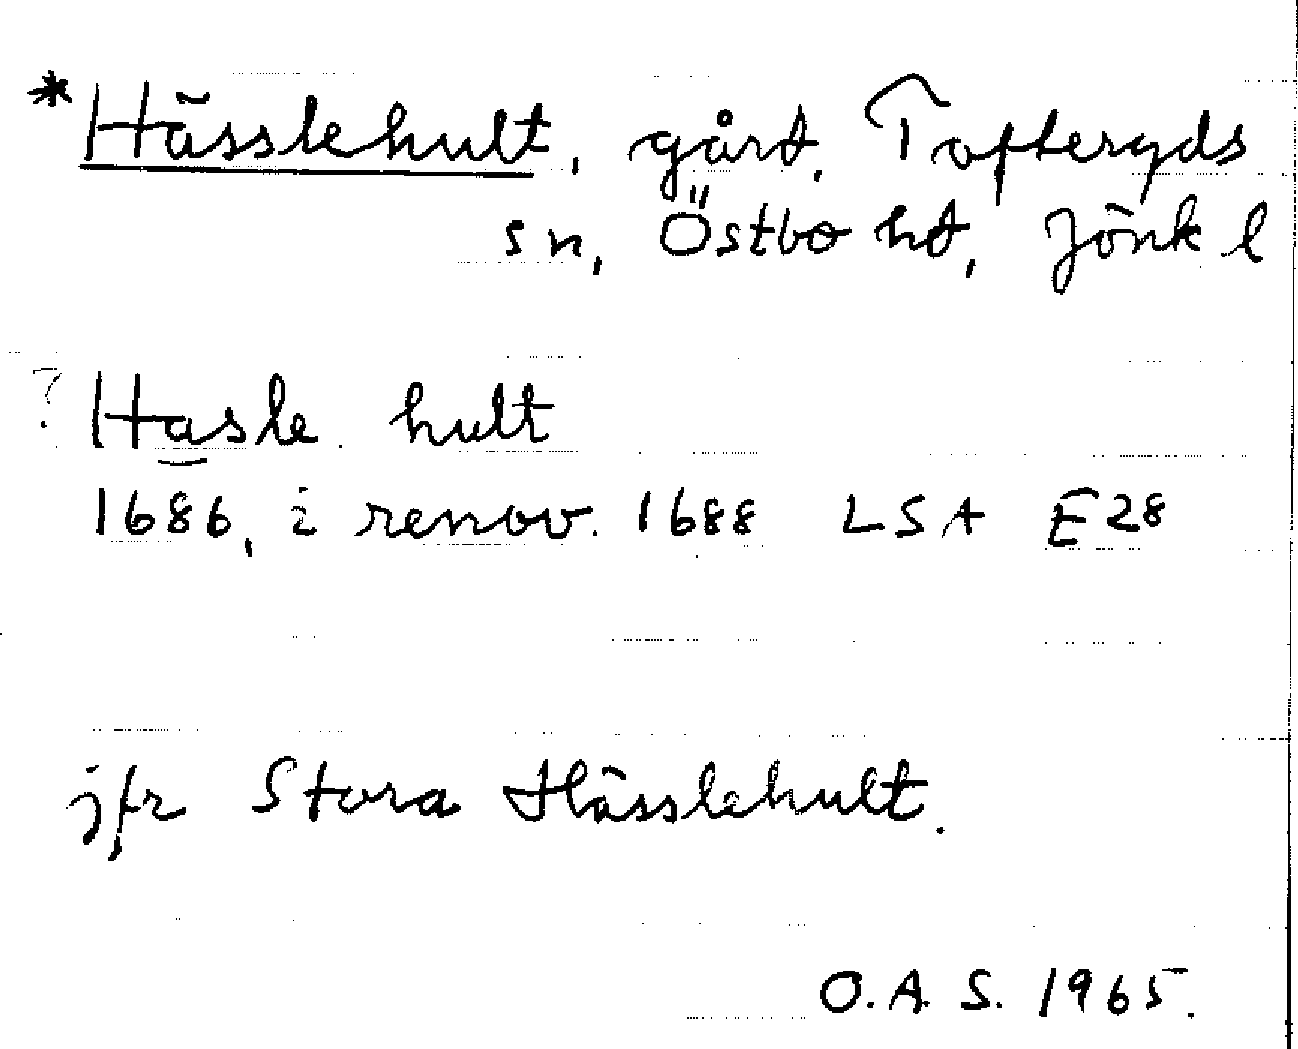 *Hässlehult, gård, Tofteryds
sn, Östbo hd, Jönk l
? Hasle hult
1686, i renov. 1688 LSA E28
jfr Stora Hässlehult.
O.A.S. 1965.